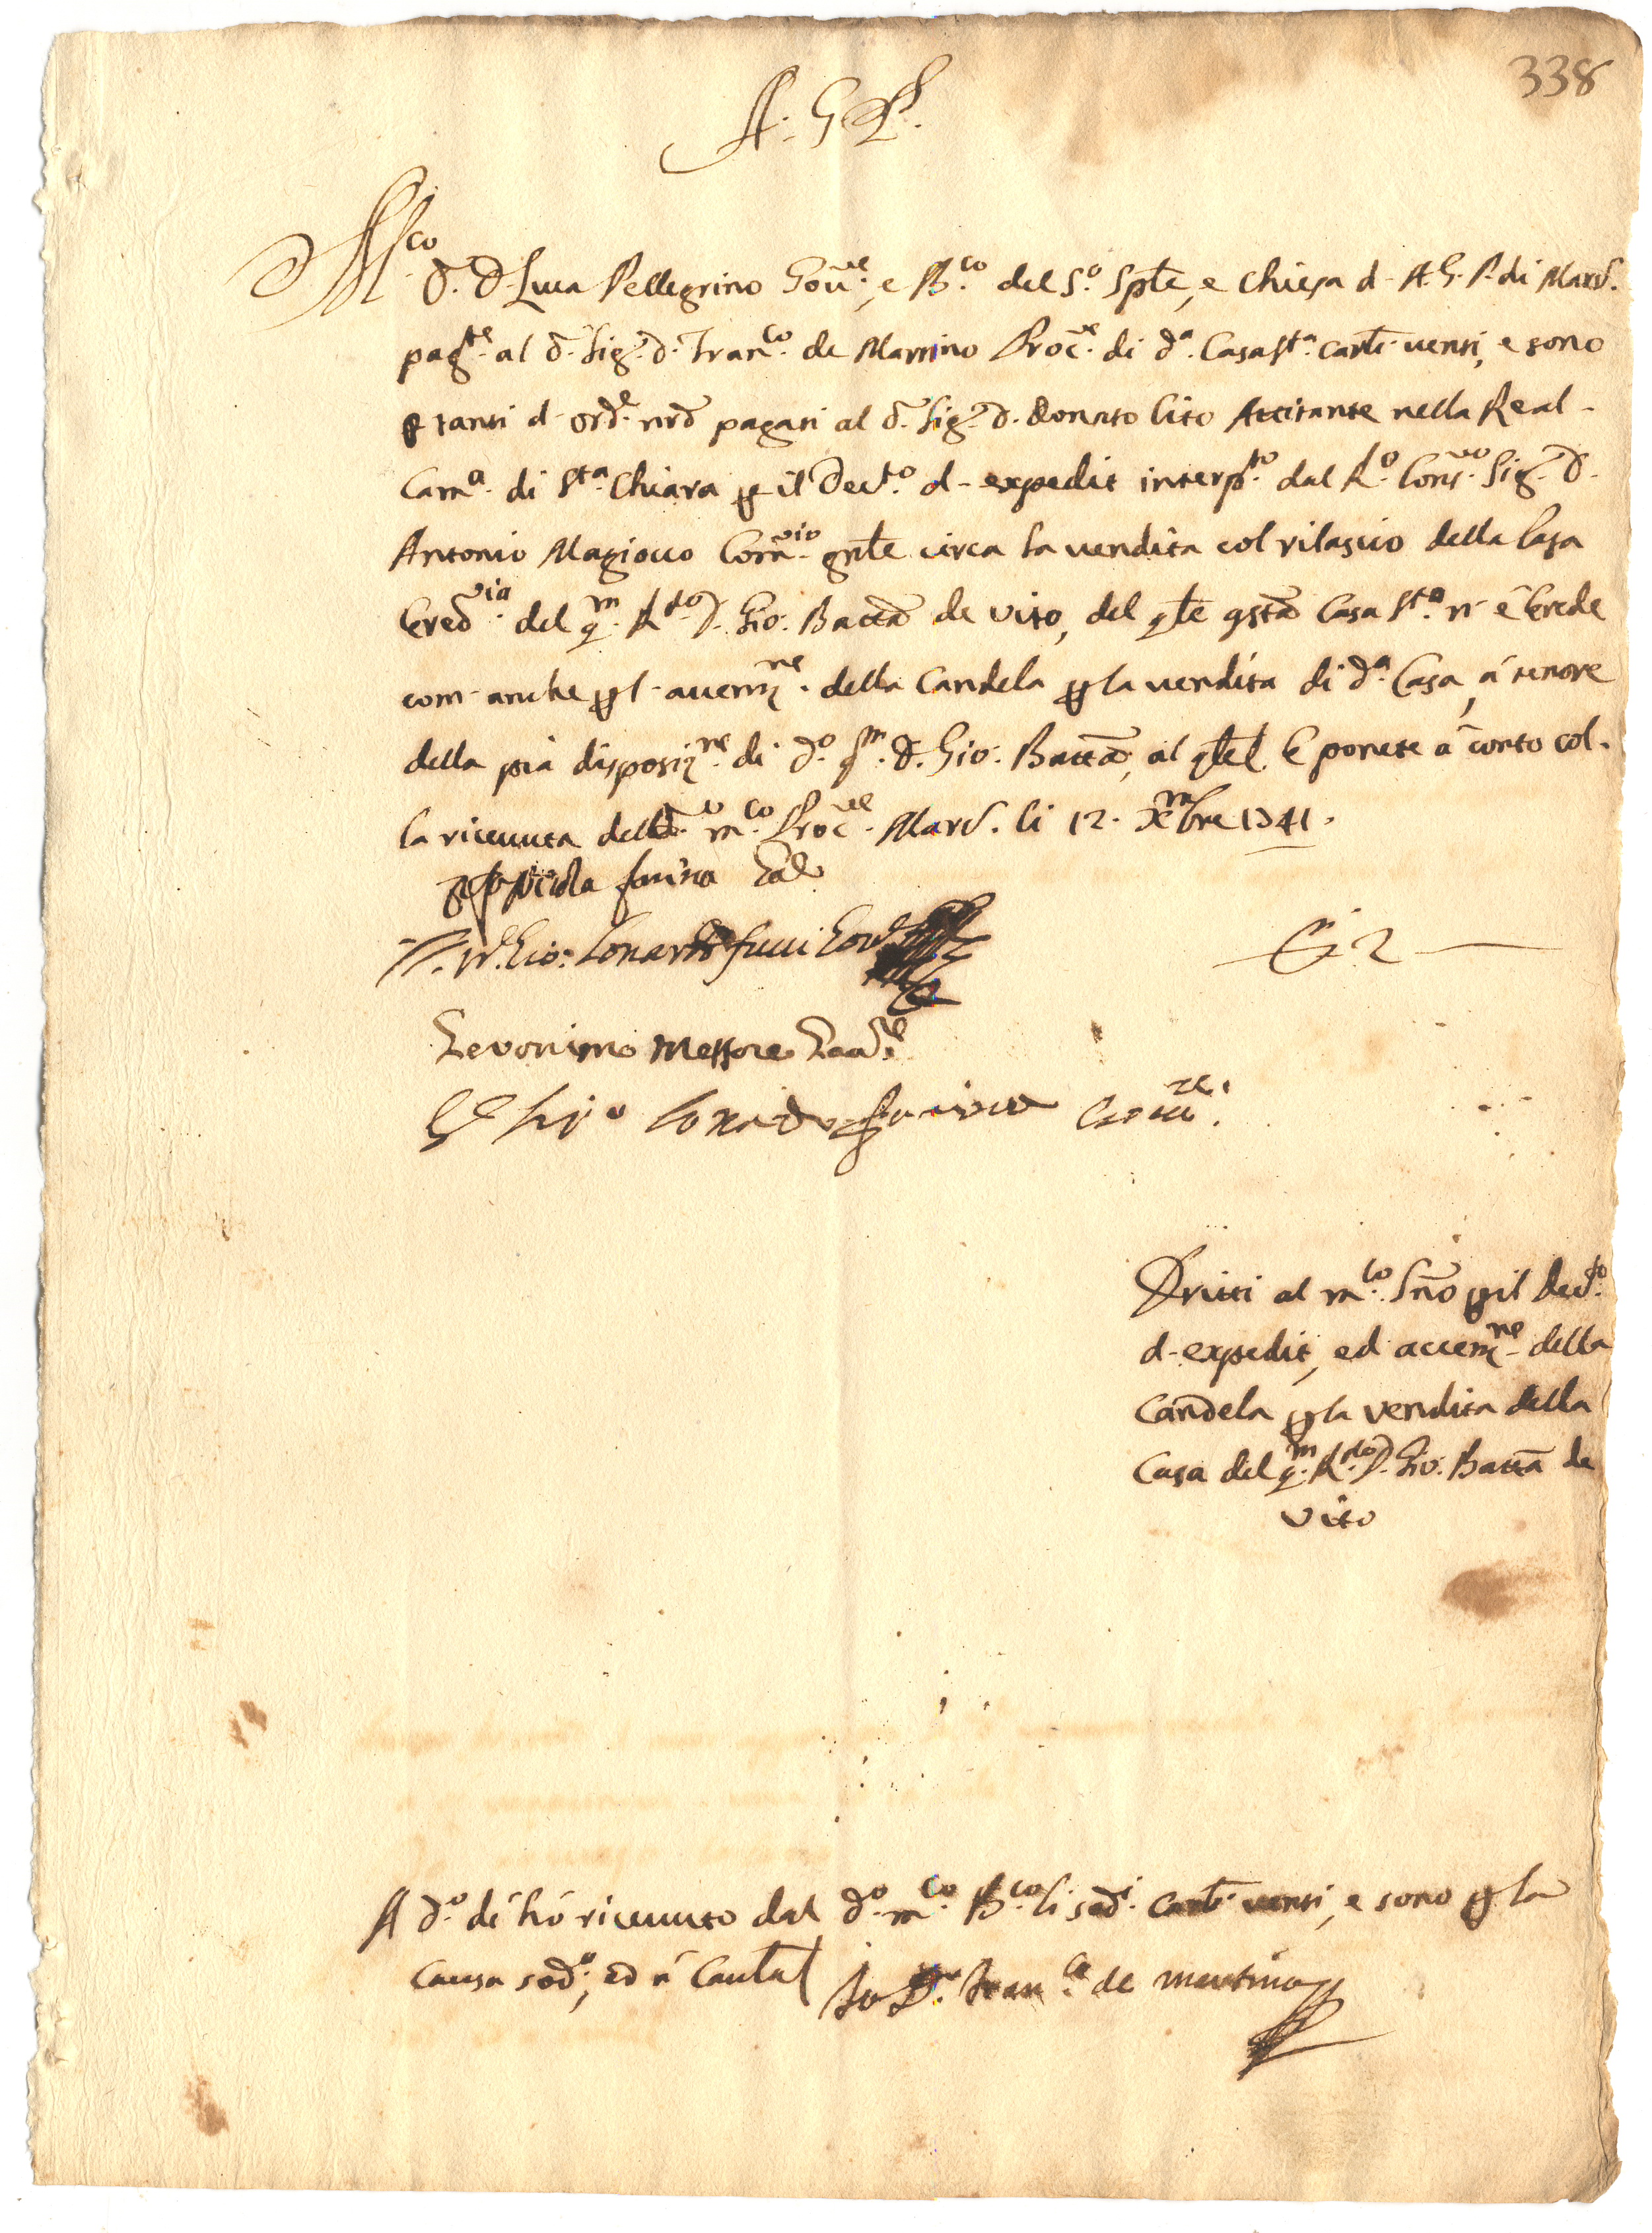 338
A. G. P.
M.co D. D. Luca Pellegrino Gov.re, e B.co del S.o Sple, e Chiesa d. A. G. P. di Mard.
pag.te al D. Sig.r D. Fran.co de Martino Proc.re di d.a Casa S.ta carl. venti, e sono
p tanti d'ord.e nro pagati al D. Sig.r D. Donato Cito Attitante nella Real
Cam.a di S.ta Chiara p il Decr.to d'expedit interp.to dal R.o Cons.ro Sig.r D.
Antonio Magiocco Com.rio gnle circa la vendita col rilascio della Casa
ered.ia del q.m R.do D. Gio: Batta de Vito, del qle qsta Casa S.ta n'è erede
com'anche p l'accenz.ne della Candela p la vendita di d.a Casa, á tenore
della pia disposiz.ne di d.o q.m D. Gio: Batta, al qle E ponete á conto col-
la ricevuta del d.o m.co Proc.re Mard. li 12. Xmbre 1741.
Nicola farina
Gio: Lonardo fucci Gov.re
Geronimo Messore Gov.re
Gov.re
2 —
Dritti al m.co S.no p il Decr.to
d'expedit, ed accenz.ne della
Candela p la vendita della
Casa del q.m R.do D. Gio: Batta de
Vito
A d.o dí hó ricevuto dal d.o m.co B.co li sod.i carl. venti, e sono p la
causa sod.a, ed á Cautel Io D. Fran.co de martino